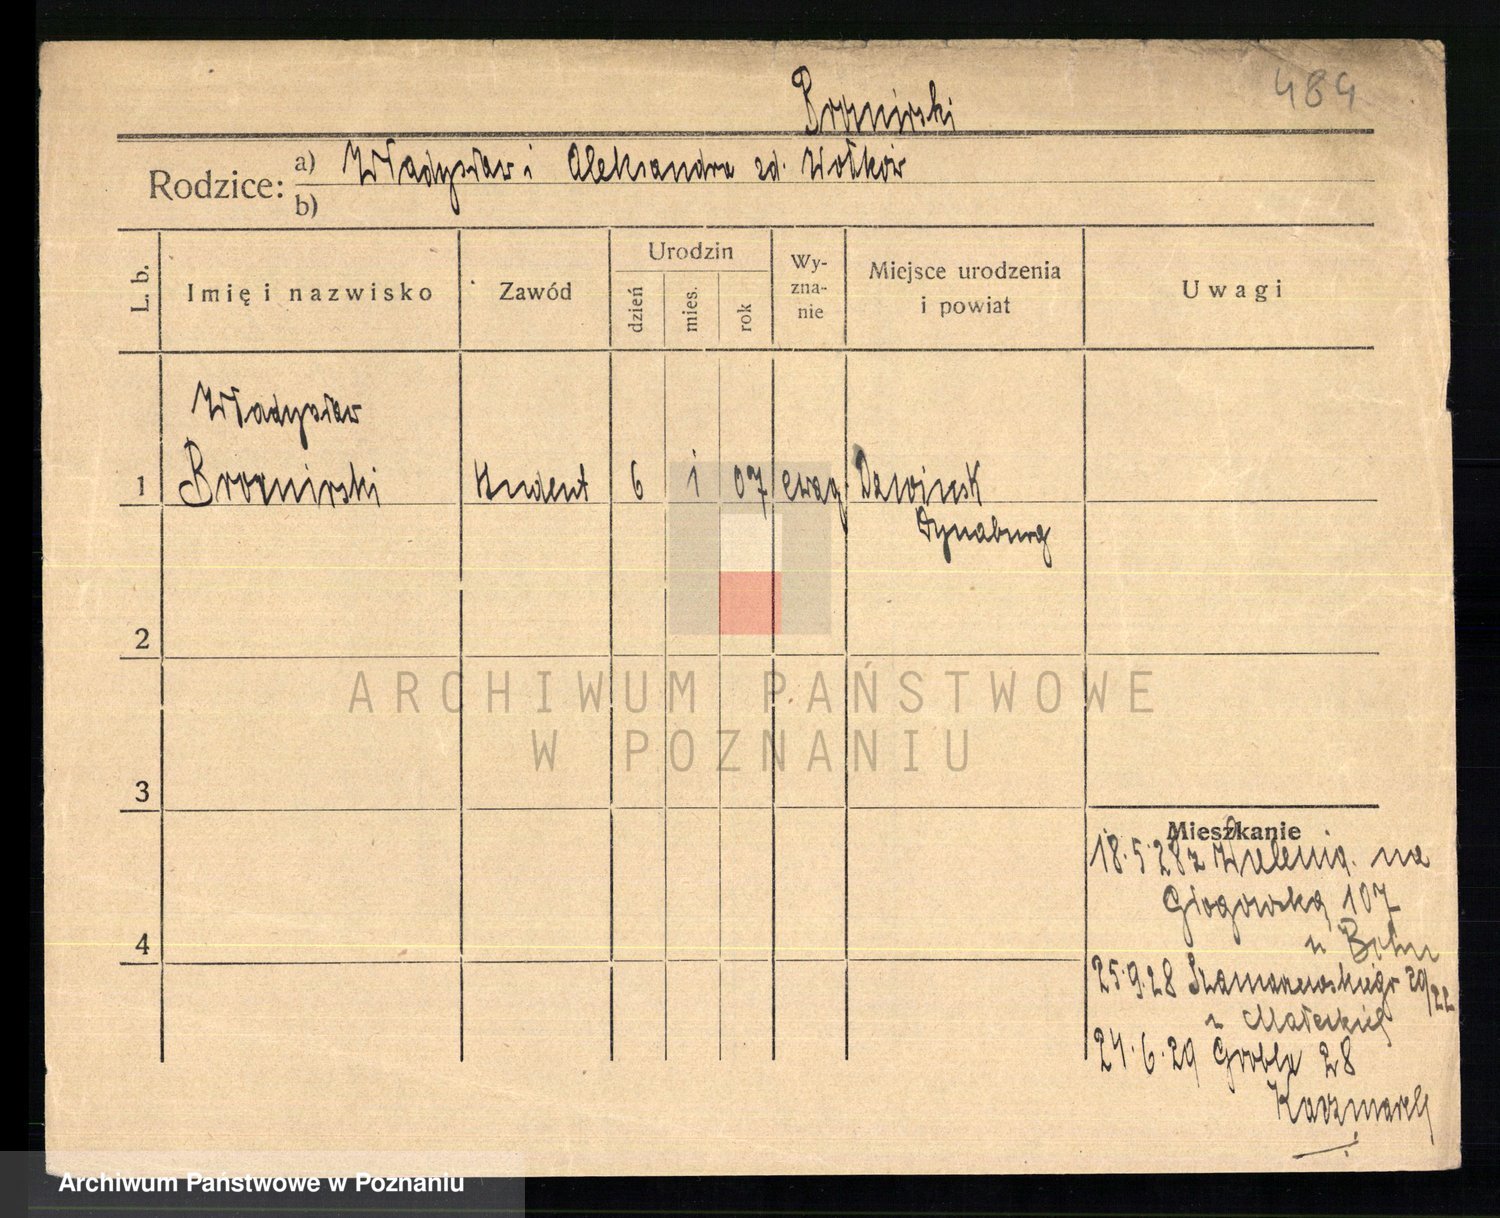 484
Rodzice: a) Władysław i Aleksandra zd. Wołków
b)
L. b.
Imię i nazwisko
Zawód
Urodzin
dzień
mies.
rok
Wy-
zna-
nie
Miejsce urodzenia
i powiat
Uwagi
Władysław
1 student 6 1 07 ewag. Dzwinsk
Dynaburg
2
ARCHIWUM PAŃSTWOWE
W POZNANIU
3
Mieszkanie
18.5.28 z na
Głogowską 107
u
4
25.9.28 Szamarzewskiego 20/22
u Małeckiej
24.6.29 Grobla 28
Kaczmarek
Archiwum Państwowe w Poznaniu